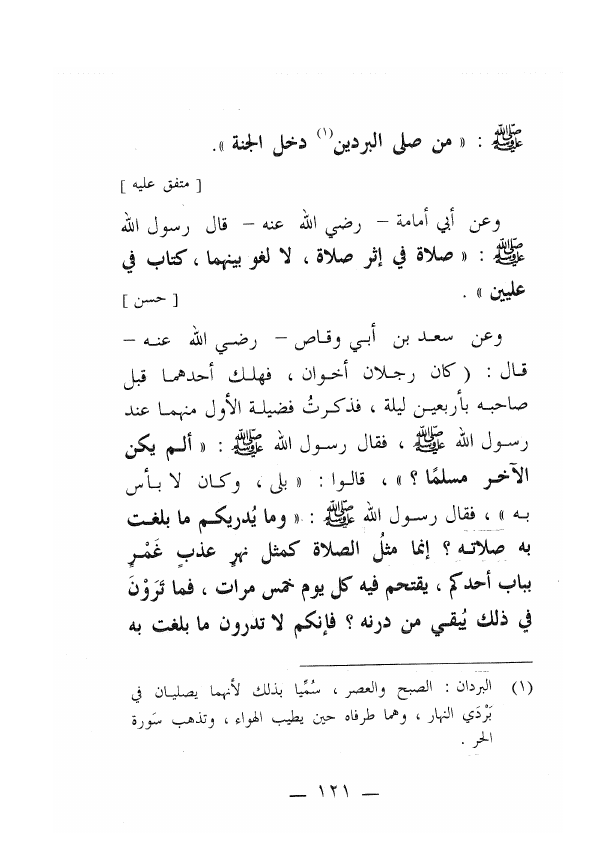 ﷺ : « من صلى البردين(١) دخل الجنة ».
[ متفق عليه ]
وعن أبي أمامة – رضي الله عنه – قال رسول الله
ﷺ : « صلاة في إثر صلاة ، لا لغو بينهما ، كتاب في
عليين » . [ حسن ]
وعن سعد بن أبي وقاص – رضي الله عنه –
قال : ( كان رجلان أخوان ، فهلك أحدهما قبل
صاحبه بأربعين ليلة ، فذكرتُ فضيلة الأول منهما عند
رسول الله ﷺ ، فقال رسول الله ﷺ : « ألم يكن
الآخر مسلمًا ؟ » ، قالوا : « بلى ، وكان لا بأس
به » ، فقال رسول الله ﷺ : « وما يُدريكم ما بلغت
به صلاته ؟ إنما مثلُ الصلاة كمثل نهرٍ عذبٍ غَمْرٍ
بباب أحدكم ، يقتحم فيه كل يوم خمس مرات ، فما تَرَوْنَ
في ذلك يُبقي من درنه ؟ فإنكم لا تدرون ما بلغت به
(١) البردان : الصبح والعصر ، سُمِّيا بذلك لأنهما يصليان في
بَرْدَي النهار ، وهما طرفاه حين يطيب الهواء ، وتذهب سَورة
الحر .
— ١٢١ —